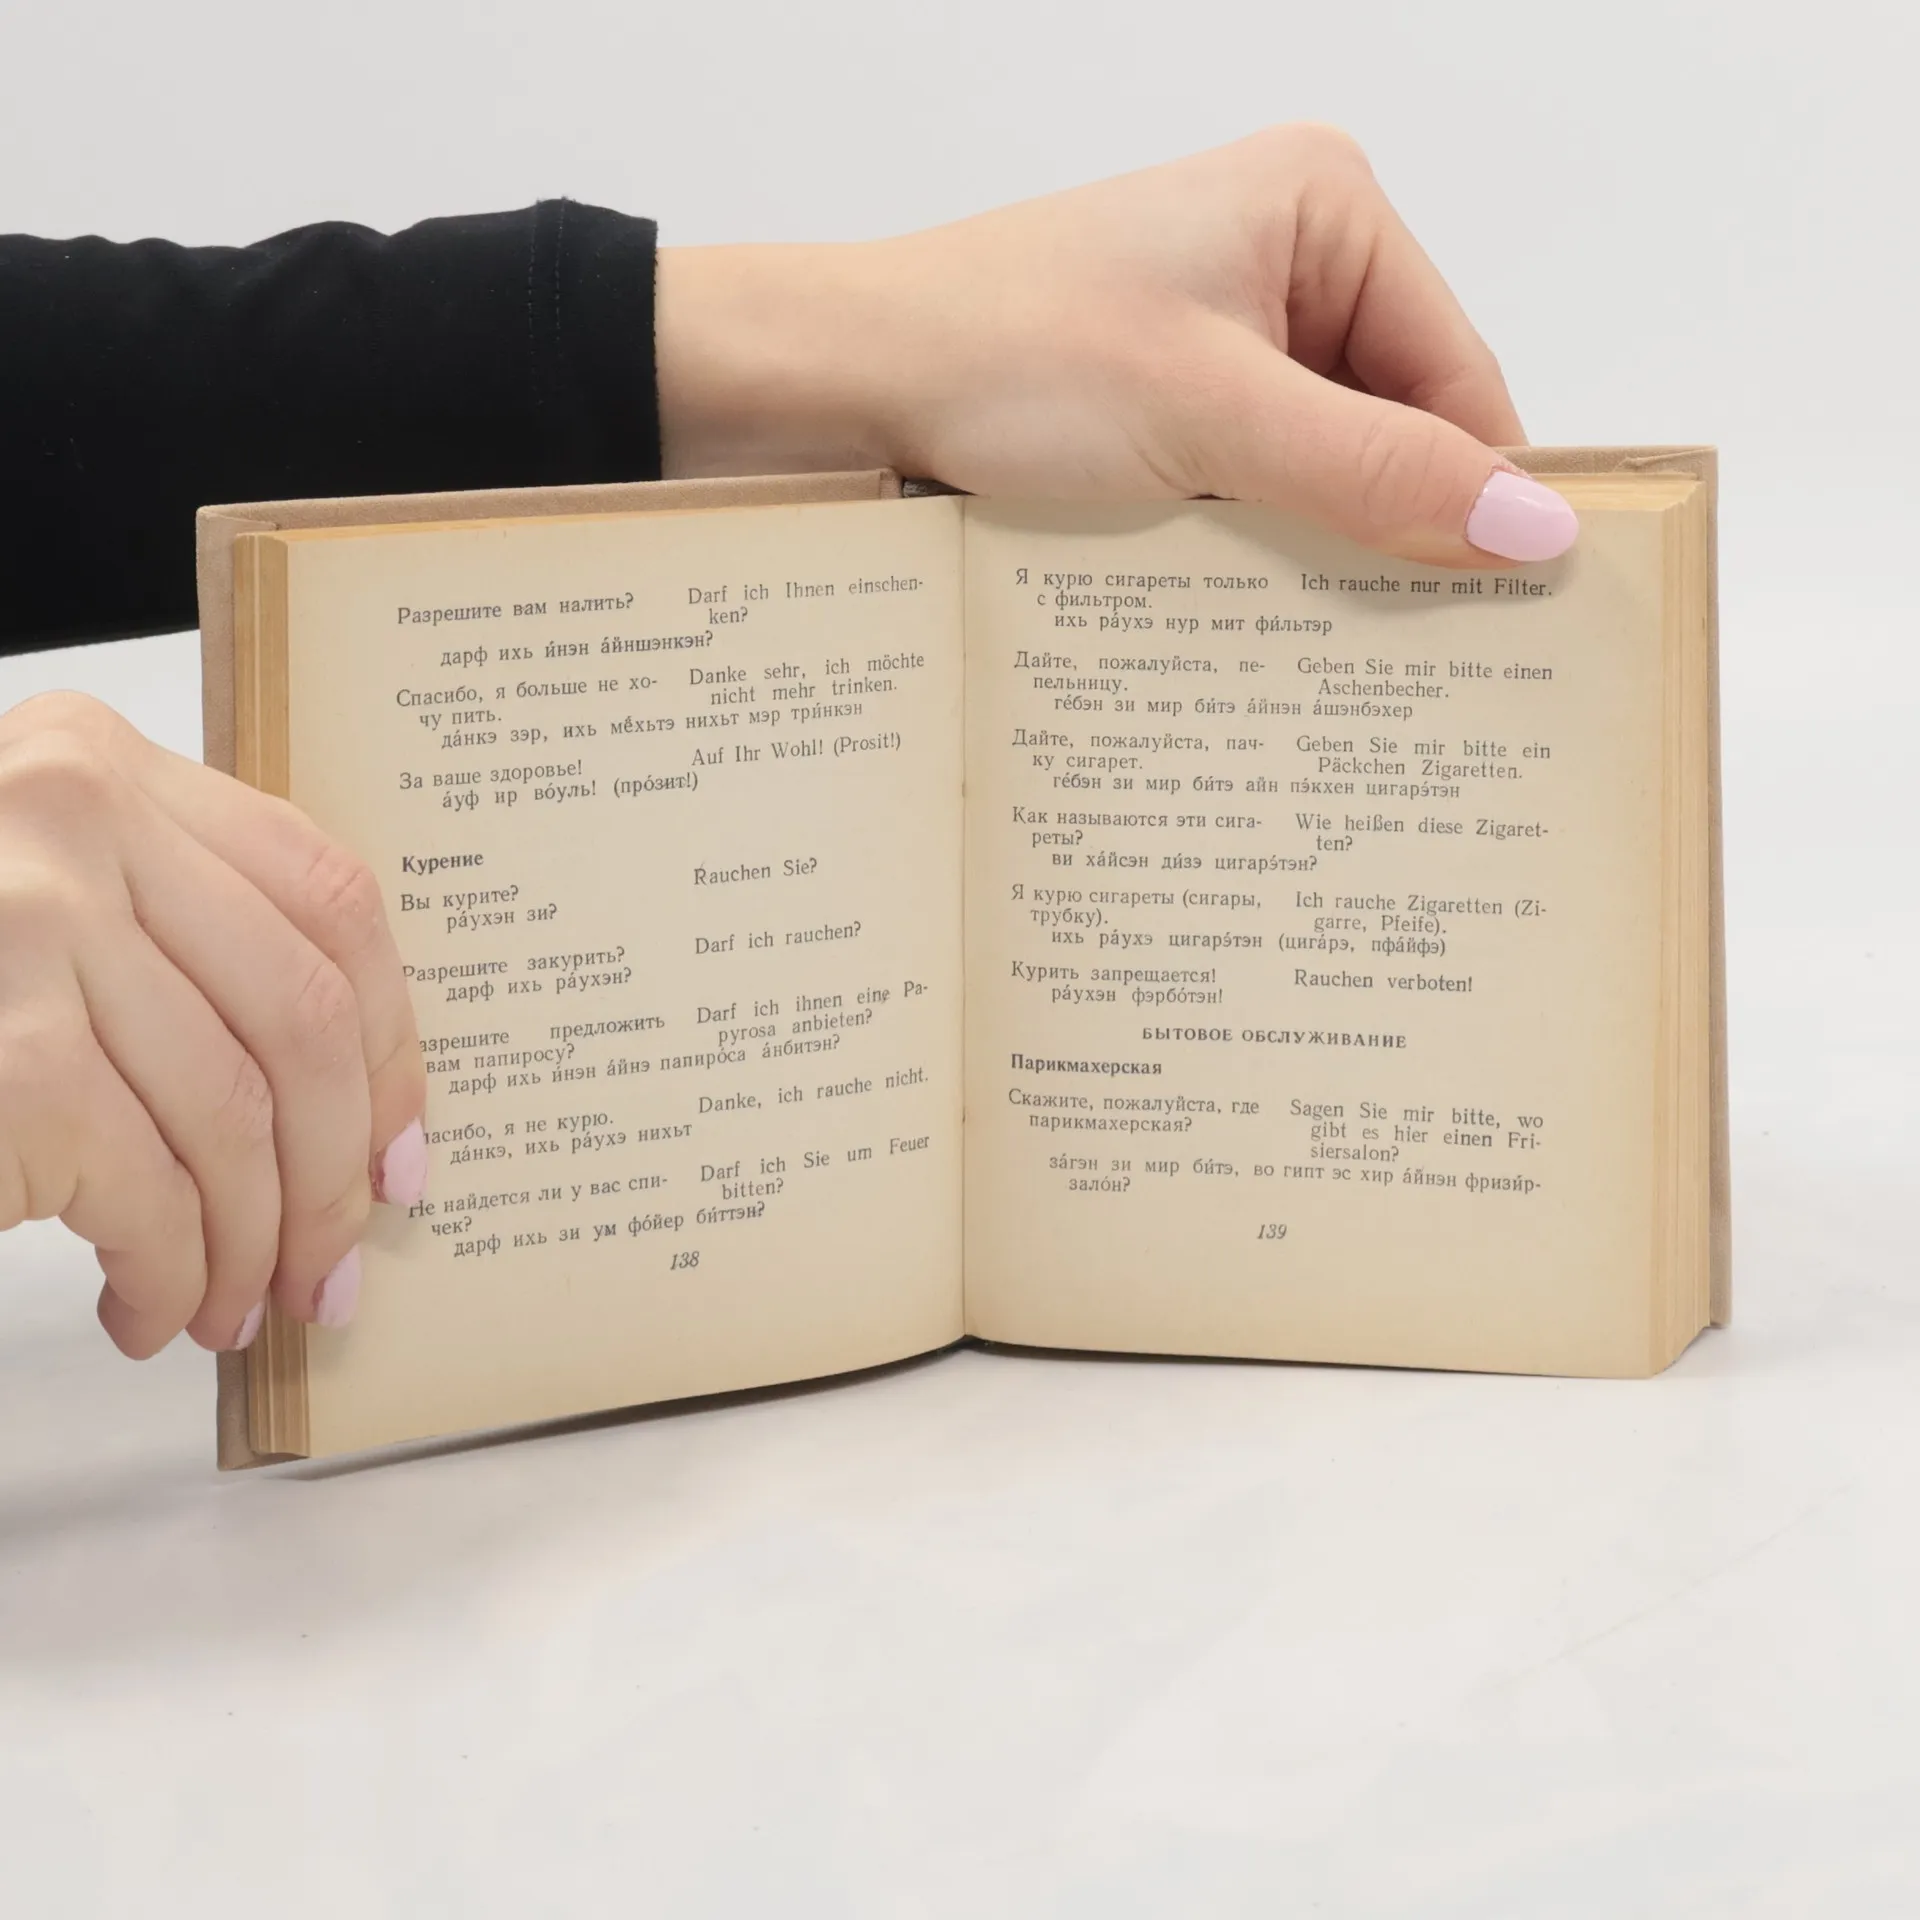 Разрешите вам налить? Darf ich Ihnen einschen-
ken?
дарф ихь и́нэн а́йншэнкэн?
Спасибо, я больше не хо- Danke sehr, ich möchte
чу пить. nicht mehr trinken.
да́нкэ зэр, ихь мё́хьтэ нихьт мэр три́нкэн
За ваше здоровье! Auf Ihr Wohl! (Prosit!)
а́уф ир во́уль! (про́зит!)
Курение
Вы курите? Rauchen Sie?
ра́ухэн зи?
Разрешите закурить? Darf ich rauchen?
дарф ихь ра́ухэн?
азрешите предложить Darf ich ihnen eine Pa-
вам папиросу? pyrosa anbieten?
дарф ихь и́нэн а́йнэ папиро́са а́нбитэн?
пасибо, я не курю. Danke, ich rauche nicht.
да́нкэ, ихь ра́ухэ нихьт
Не найдется ли у вас спи- Darf ich Sie um Feuer
чек? bitten?
дарф ихь зи ум фо́йер би́ттэн?
138
Я курю сигареты только Ich rauche nur mit Filter.
с фильтром.
ихь ра́ухэ нур мит фи́льтэр
Дайте, пожалуйста, пе- Geben Sie mir bitte einen
пельницу. Aschenbecher.
ге́бэн зи мир би́тэ а́йнэн а́шэнбэхер
Дайте, пожалуйста, пач- Geben Sie mir bitte ein
ку сигарет. Päckchen Zigaretten.
ге́бэн зи мир би́тэ айн пэ́кхен цигарэ́тэн
Как называются эти сига- Wie heißen diese Zigaret-
реты? ten?
ви ха́йсэн ди́зэ цигарэ́тэн?
Я курю сигареты (сигары, Ich rauche Zigaretten (Zi-
трубку). garre, Pfeife).
ихь ра́ухэ цигарэ́тэн (цига́рэ, пфа́йфэ)
Курить запрещается! Rauchen verboten!
ра́ухэн фэрбо́тэн!
БЫТОВОЕ ОБСЛУЖИВАНИЕ
Парикмахерская
Скажите, пожалуйста, где Sagen Sie mir bitte, wo
парикмахерская? gibt es hier einen Fri-
siersalon?
за́гэн зи мир би́тэ, во гипт эс хир а́йнэн фризи́р-
зало́н?
139